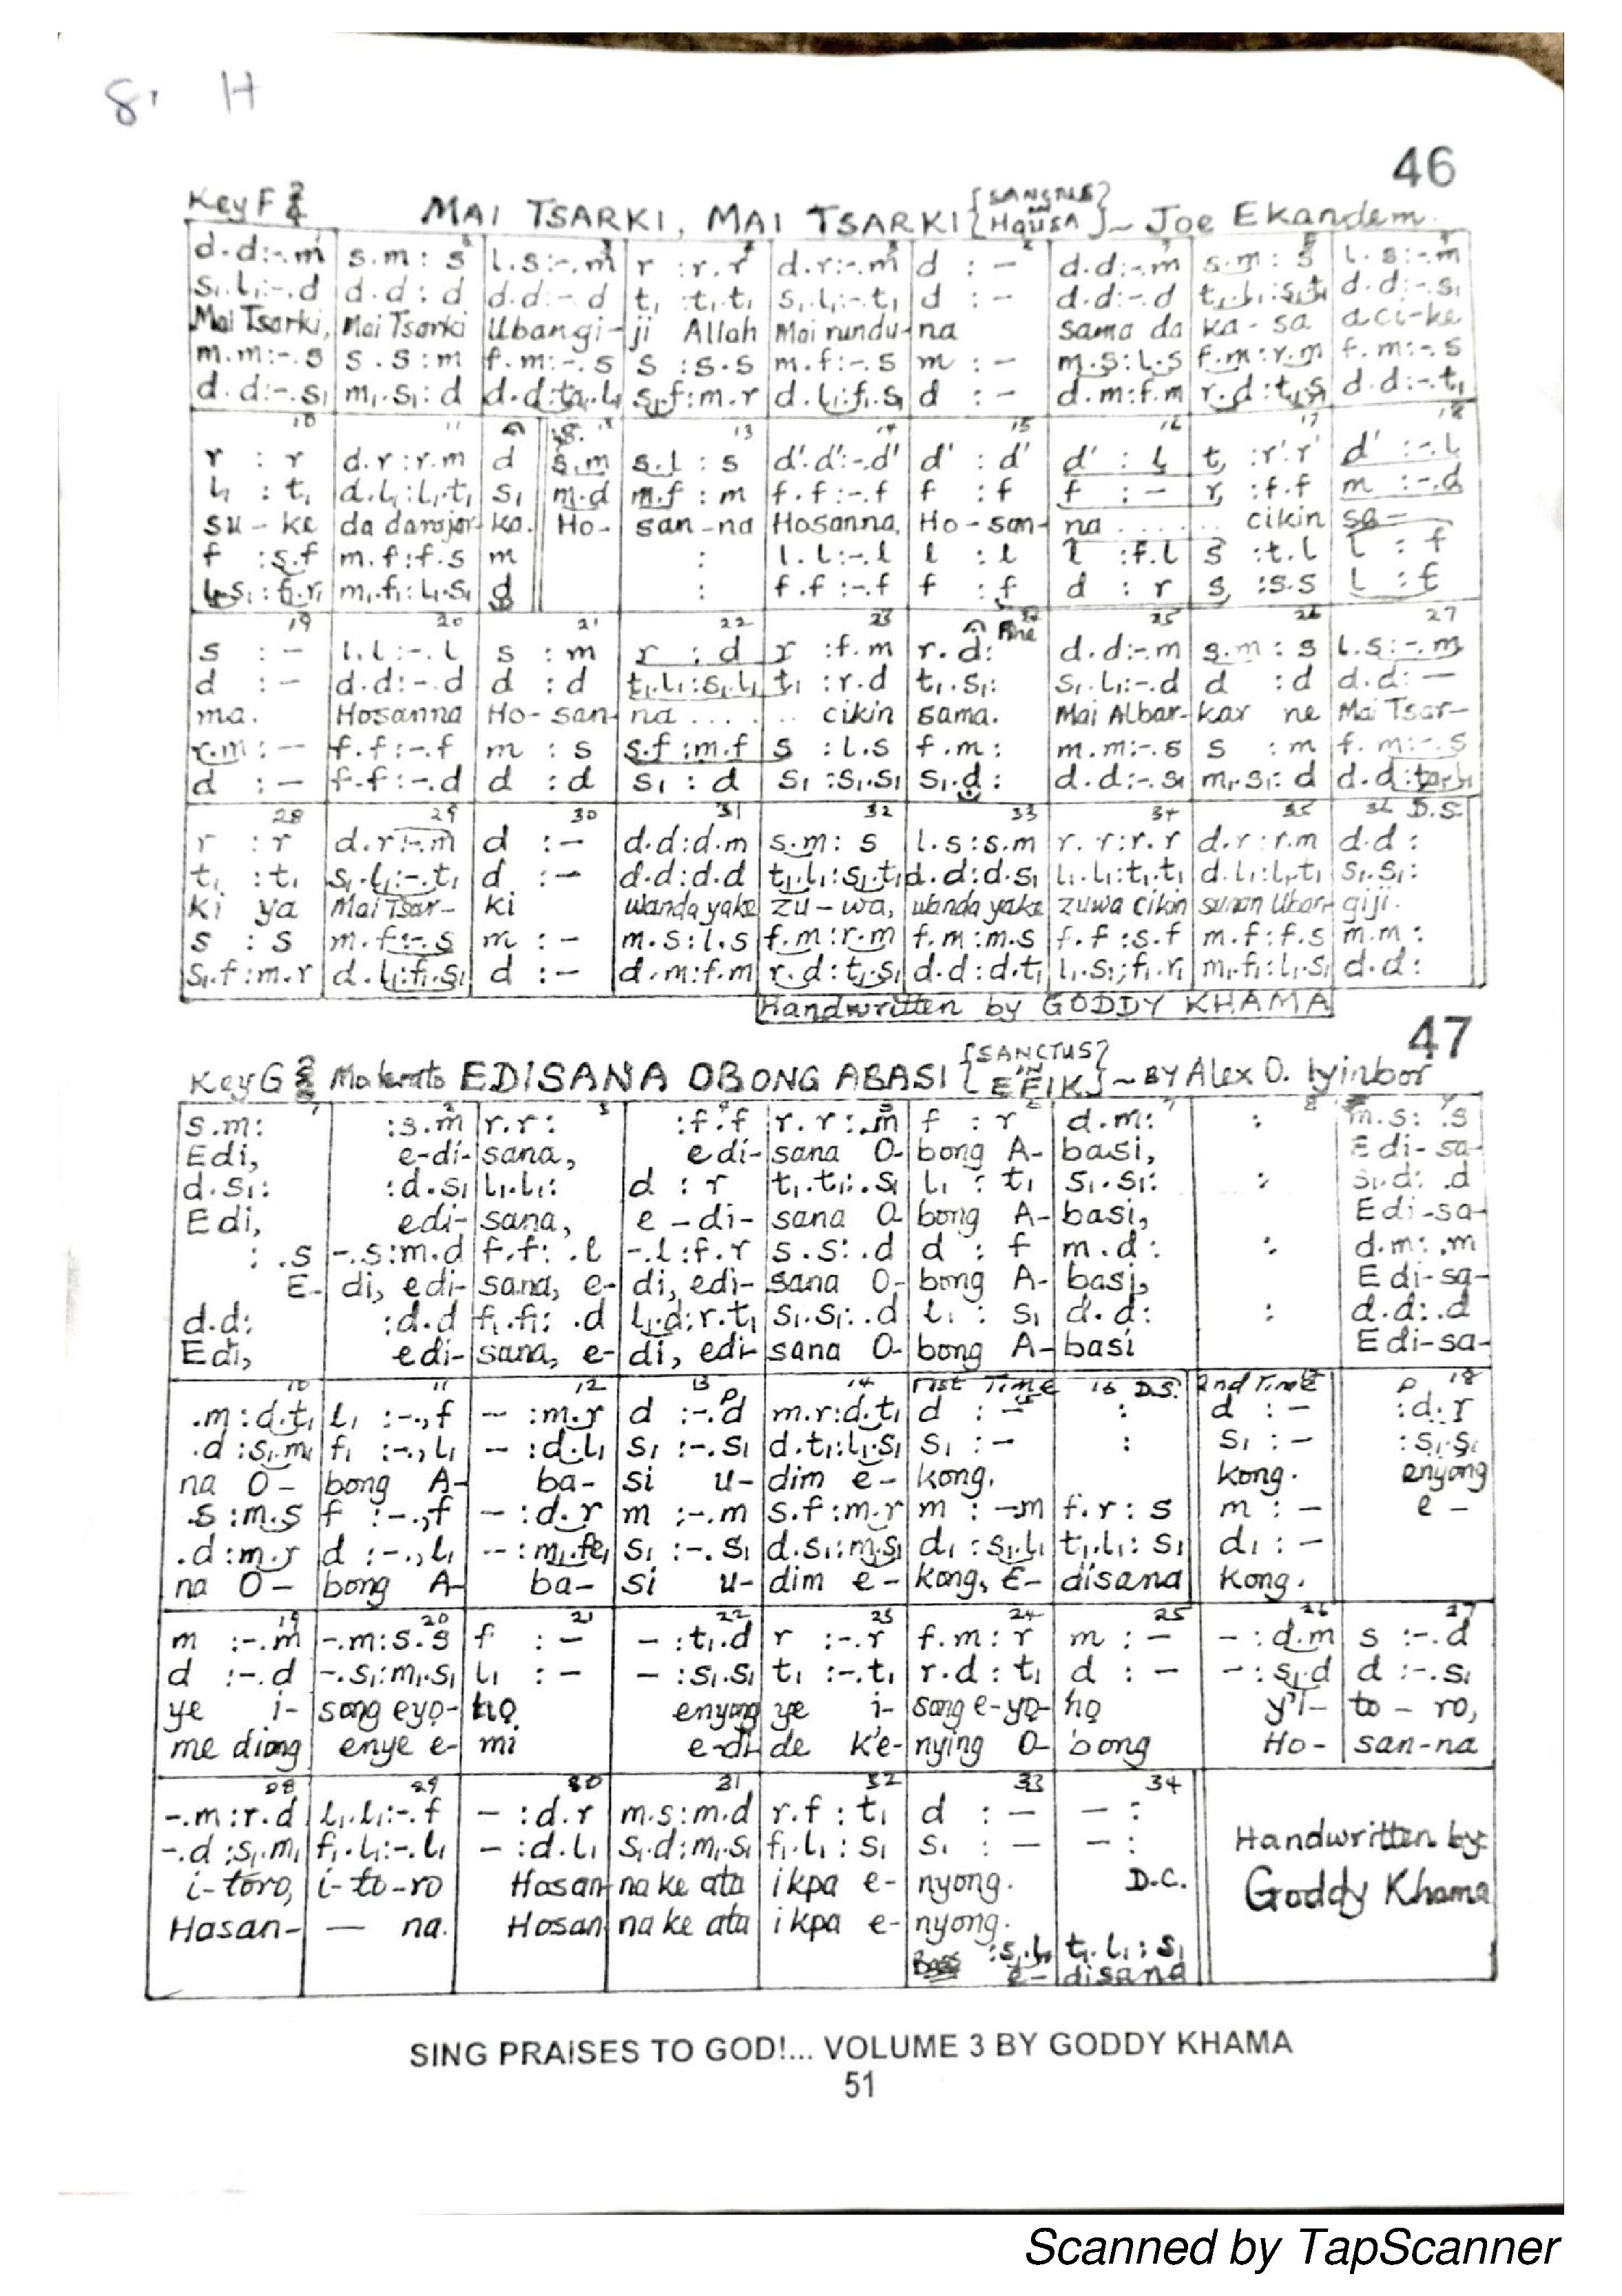 8. H
46
Key F 2/4 MAI TSARKI, MAI TSARKI {SANCTUS IN HAUSA} ~ Joe Ekandem
d.d:-.m | s.m : s | l.s:-.m | r :r.r | d.r:-.m | d : - | d.d:-.m | s.m : s | l.s:-.m
s₁.l₁:-.d | d.d : d | d.d:-.d | t₁ :t₁.t₁ | s₁.l₁:-.t₁ | d : - | d.d:-.d | t₁.l₁:s₁.t₁ | d.d:-.s₁
Mai Tsarki, Mai Tsarki Ubangi-ji Allah Mai rundu-na Sama da ka-sa aci-ke
m.m:-.s | s.s:m | f.m:-.s | s :s.s | m.f:-.s | m : - | m.s:l.s | f.m:r.m | f.m:-.s
d.d:-.s₁ | m₁.s₁:d | d.d:ta₁.l₁ | s₁.f:m.r | d.l₁:f₁.s₁ | d : - | d.m:f.m | r.d:t₁.s₁ | d.d:-.t₁
10 11 13 14 15 16 17 18
r : r | d.r:r.m | d || s.m | s.l : s | d'.d':-.d' | d' : d' | d' : l | t :r'.r' | d' :-.l
l₁ : t₁ | d.l₁:l₁.t₁ | s₁ || m.d | m.f : m | f.f:-.f | f : f | f : - | r :f.f | m :-.d
su-ke da darajar-ka. Ho- san-na Hosanna, Ho-san-na ...... cikin sa-
f :s.f | m.f:f.s | m || | : | l.l:-.l | l : l | l :f.l | s :t.l | l : f
l₁.s₁:f₁.r₁ | m₁.f₁:l₁.s₁ | d || | : | f.f:-.f | f : f | d : r | s :s.s | l : f
19 20 21 22 23 Fine 25 26 27
s : - | l.l:-.l | s : m | r : d | r :f.m | r.d: | d.d:-.m | s.m : s | l.s:-.m
d : - | d.d:-.d | d : d | t₁.l₁:s₁.l₁ | t₁ :r.d | t₁.s₁: | s₁.l₁:-.d | d : d | d.d: -
ma. Hosanna Ho-san-na ...... cikin sama. Mai Albar-kar ne Mai Tsar-
r.m: - | f.f:-.f | m : s | s.f:m.f | s :l.s | f.m: | m.m:-.s | s : m | f.m:-.s
d : - | f.f:-.d | d : d | s₁ : d | s₁ :s₁.s₁ | s₁.d: | d.d:-.s₁ | m₁.s₁: d | d.d:ta₁.l₁
28 29 30 31 32 33 34 35 36 D.S.
r : r | d.r:-.m | d : - | d.d:d.m | s.m: s | l.s:s.m | r.r:r.r | d.r:r.m | d.d:
t₁ : t₁ | s₁.l₁:-.t₁ | d : - | d.d:d.d | t₁.l₁:s₁.t₁ | d.d:d.s₁ | l₁.l₁:t₁.t₁ | d.l₁:l₁.t₁ | s₁.s₁:
ki ya Mai Tsar-ki wanda yake zu-wa, wanda yake zuwa cikin sunan Uban-giji.
s : s | m.f:-.s | m : - | m.s:l.s | f.m:r.m | f.m:m.s | f.f:s.f | m.f:f.s | m.m:
s₁.f:m.r | d.l₁:f₁.s₁ | d : - | d.m:f.m | r.d:t₁.s₁ | d.d:d.t₁ | l₁.s₁:f₁.r₁ | m₁.f₁:l₁.s₁ | d.d:
Handwritten by GODDY KHAMA
47
Key G Moderato EDISANA OBONG ABASI {SANCTUS IN EFIK} ~ BY Alex O. Iyinbor
s.m: | :s.m | r.r: | :f.f | r.r:.m | f : r | d.m: | : | m.s: .s
Edi, e-di-sana, edi-sana O-bong A-basi, Edi-sa-
d.s₁: | :d.s₁ | l₁.l₁: | d : r | t₁.t₁:.s₁ | l₁ : t₁ | s₁.s₁: | : | s₁.d: .d
Edi, edi-sana, e-di-sana O-bong A-basi, Edi-sa-
: .s | -.s:m.d | f.f: .l | -.l:f.r | s.s: .d | d : f | m.d: | : | d.m: .m
E-di, edi-sana, e-di, edi-sana O-bong A-basi, Edi-sa-
d.d: | :d.d | f₁.f₁: .d | l₁.d:r.t₁ | s₁.s₁: .d | l₁ : s₁ | d.d: | : | d.d: .d
Edi, edi-sana, e-di, edi-sana O-bong A-basi Edi-sa-
10 11 12 13 p 14 First Time 16 D.S. 2nd Time p 18
.m:d.t₁ | l₁ :-.,f | - :m.r | d :-.d | m.r:d.t₁ | d : - | : | d : - | :d.r
.d:s₁.m₁ | f₁ :-.,l₁ | - :d.l₁ | s₁ :-.s₁ | d.t₁:l₁.s₁ | s₁ : - | : | s₁ : - | :s₁.s₁
na O-bong A-ba-si u-dim e-kong. kong. enyong
.s:m.s | f :-.,f | - :d.r | m :-.m | s.f:m.r | m : -.m | f.r : s | m : - | e -
.d:m.s | d :-.,l₁ | - :m₁.fe₁ | s₁ :-.s₁ | d.s₁:m₁.s₁ | d₁ :s₁.l₁ | t₁.l₁: s₁ | d₁ : -
na O-bong A-ba-si u-dim e-kong, E-disana kong.
19 20 21 22 23 24 25 26 27
m :-.m | -.m:s.s | f : - | - :t₁.d | r :-.r | f.m : r | m : - | - :d.m | s :-.d
d :-.d | -.s₁:m₁.s₁ | l₁ : - | - :s₁.s₁ | t₁ :-.t₁ | r.d : t₁ | d : - | - :s₁.d | d :-.s₁
ye i-song eyọ-họ enyong ye i-song e-yọ-họ y'i-to-ro,
me diong enye e-mi e-di-de k'e-nying O-bong Ho-san-na
28 29 30 31 32 33 34
-.m:r.d | l₁.l₁:-.f | - :d.r | m.s:m.d | r.f : t₁ | d : - | - :
-.d:s₁.m₁ | f₁.l₁:-.l₁ | - :d.l₁ | s₁.d:m₁.s₁ | f₁.l₁ : s₁ | s₁ : - | - :
Handwritten by:
i-toro, i-to-ro Hosan-na ke ata ikpa e-nyong. D.C.
Goddy Khama
Hosan- — na. Hosan-na ke ata ikpa e-nyong.
Bass :s₁.l₁ | t₁.l₁ : s₁
e-disana
SING PRAISES TO GOD!... VOLUME 3 BY GODDY KHAMA
51
Scanned by TapScanner